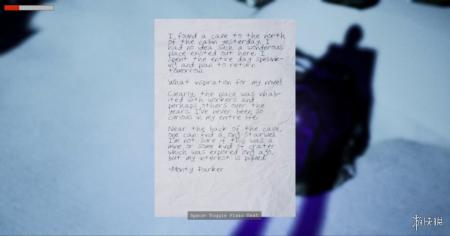 I found a cave to the north
of the cabin yesterday. I
had no idea such a wonderous
place existed out here. I
spent the entire day
and plan to return
tomorrow.
What inspiration for my novel!
Clearly, the place was
with workers and
perhaps others over the
years. I've never been so
curious in my entire life.
Near the back of the cave,
one can find a long stairwell.
I'm not sure if this was a
mine or some kind of crater
which was explored long ago,
but my interest is piqued.
-Monty
Space: Toggle Plain Text
游侠网